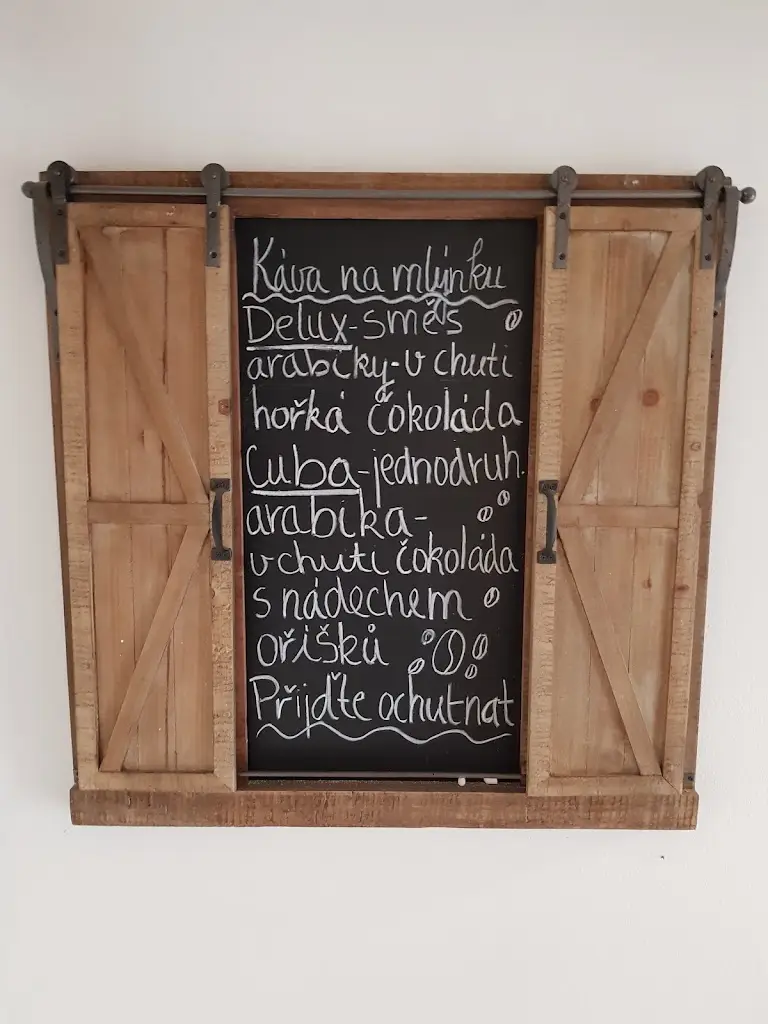 Káva na mlýnku
Delux-směs
arabiky-v chuti
hořká čokoláda
Cuba-jednodruh.
arabika-
v chuti čokoláda
s nádechem
oříšků
Přijďte ochutnat